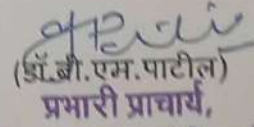 (डॉ.बी.एम.पाटील)
प्रभारी प्राचार्य,